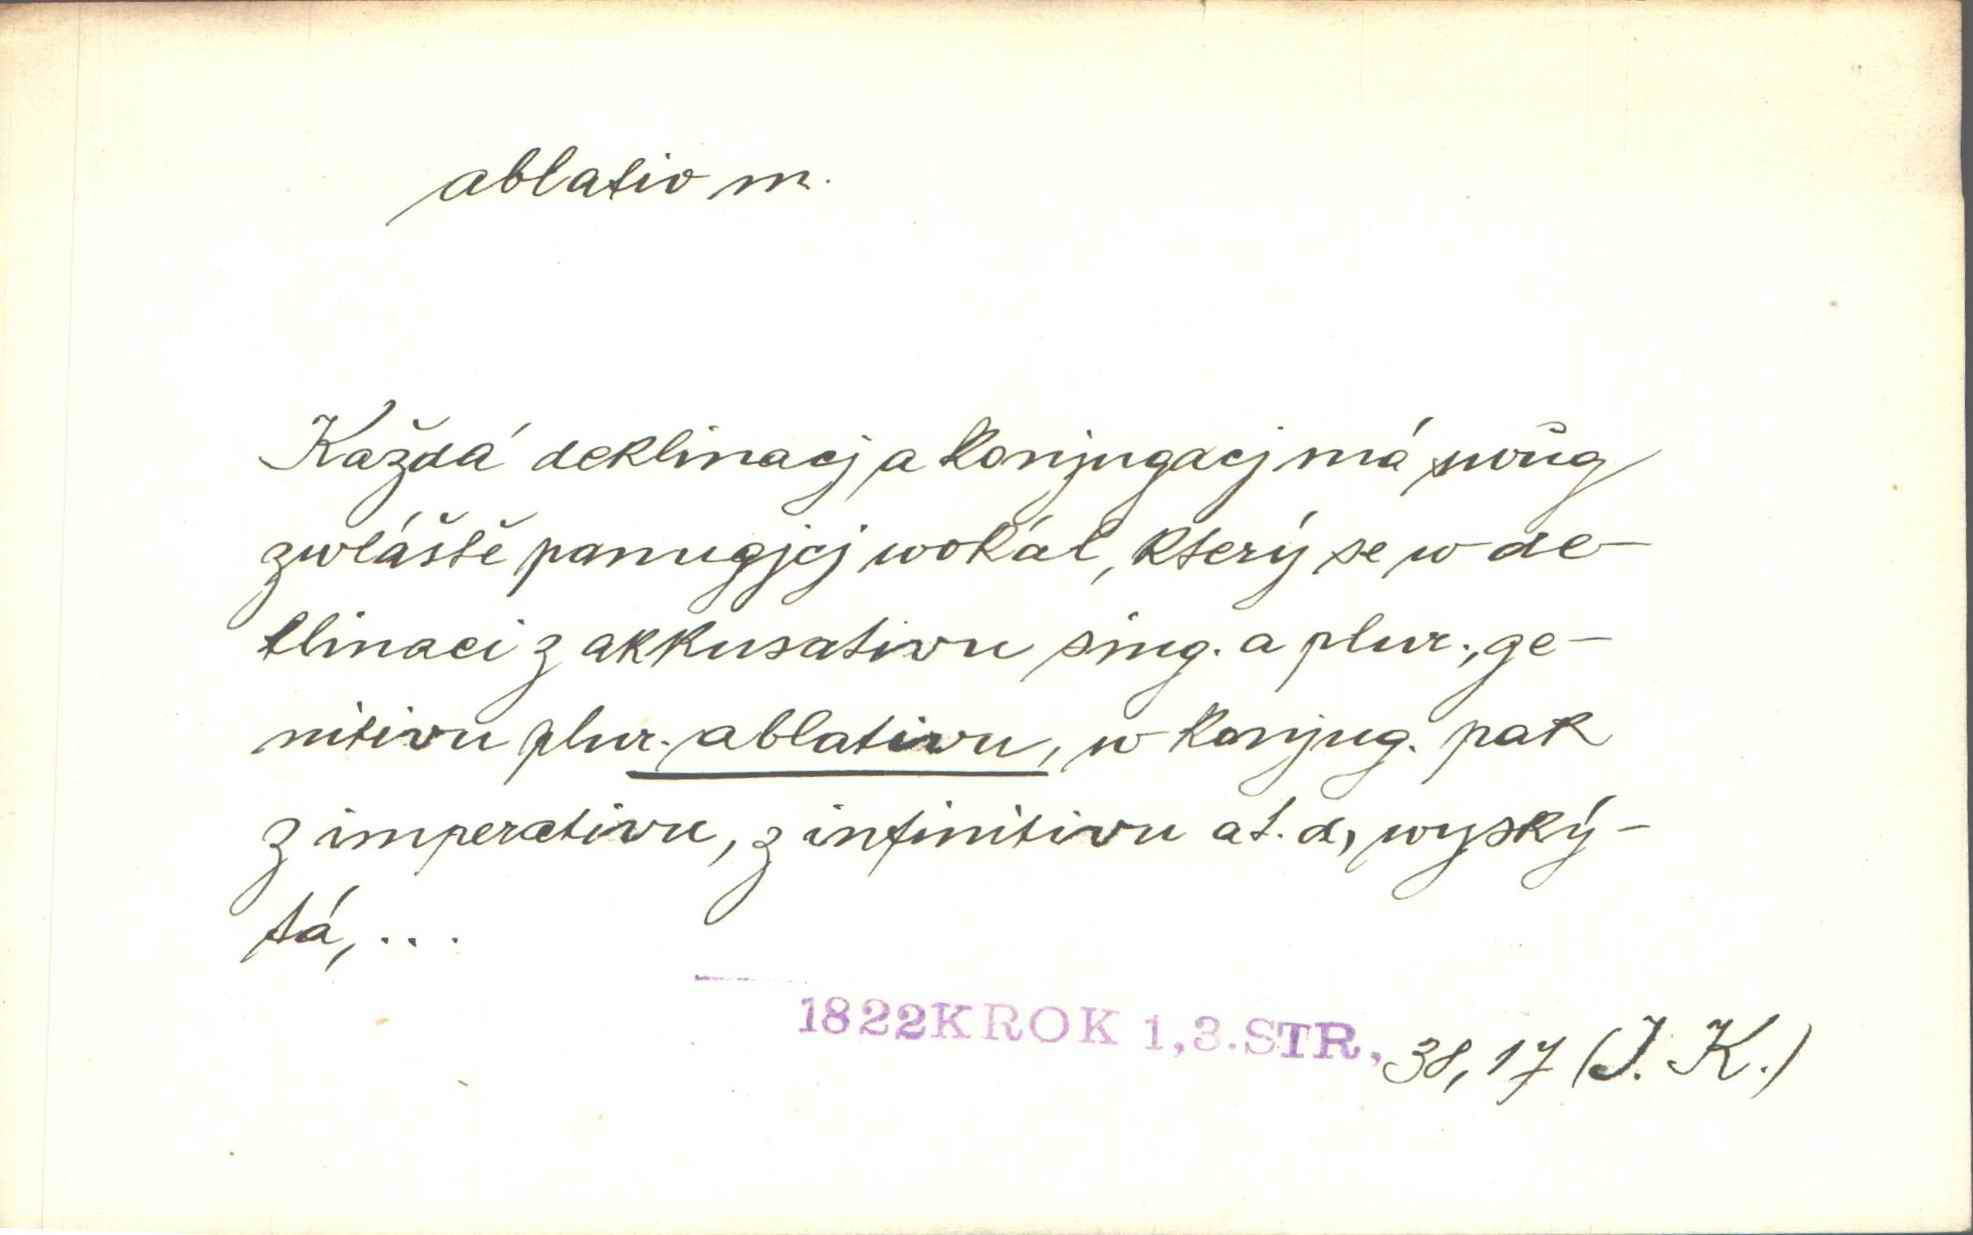 ablativ m.
Každá deklinacj a konjugacj má swůg
zwláště panugjcj wokál, který se w de-
klinaci z akkusativu sing. a plur., ge-
nitivu plur. ablativu, w konjug. pak
z imperativu, z infinitivu at. d, wyský-
tá, ...
1822KROK 1,3.STR, 38, 17 (J. K.)